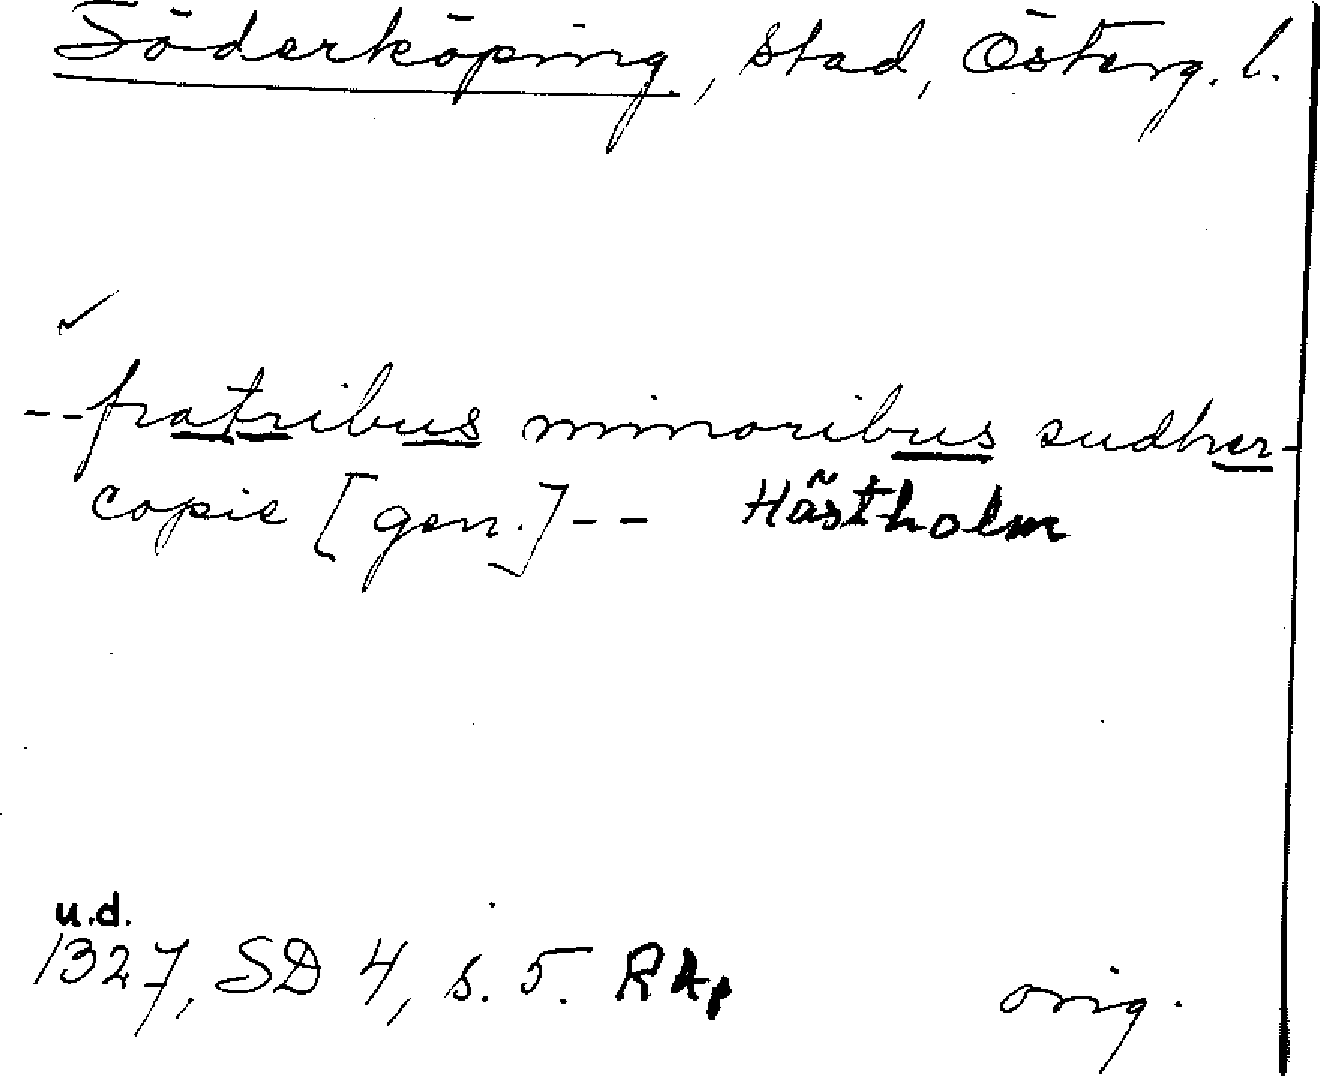 Söderköping, stad, Österg. l.
--fratribus minoribus sudher-
copie [gen.]-- Hästholm
u.d.
1327, SD 4, s. 5. Rkp
orig.